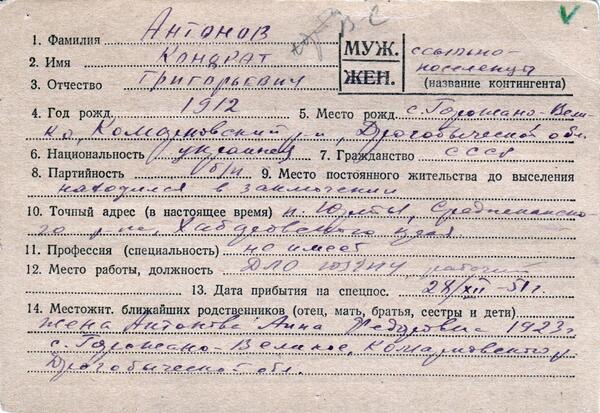 В-2
1. Фамилия Антонов
2. Имя Кондрат
3. Отчество Григорьевич
МУЖ.
ЖЕН.
ссыльно-
поселенцы
(название контингента)
4. Год рожд. 1912 5. Место рожд. с. Горожано-Вели-
ко, Комарновский р-н, Дрогобыческой обл.
6. Национальность украинец 7. Гражданство СССР
8. Партийность б/п 9. Место постоянного жительства до выселения
находился в заключении
10. Точный адрес (в настоящее время) п. Юрты, Среднеканско-
го р-на, Хабаровского края
11. Профессия (специальность) не имеет
12. Место работы, должность ДЛО ЮЗГПУ рабочий
13. Дата прибытия на спецпос. 28/XII-51 г.
14. Местожит. ближайших родственников (отец, мать, братья, сестры и дети)
жена Антонова Анна Федоровна 1923 г
с. Горожано-Великое, Комарновского р
Дрогобыческой обл.